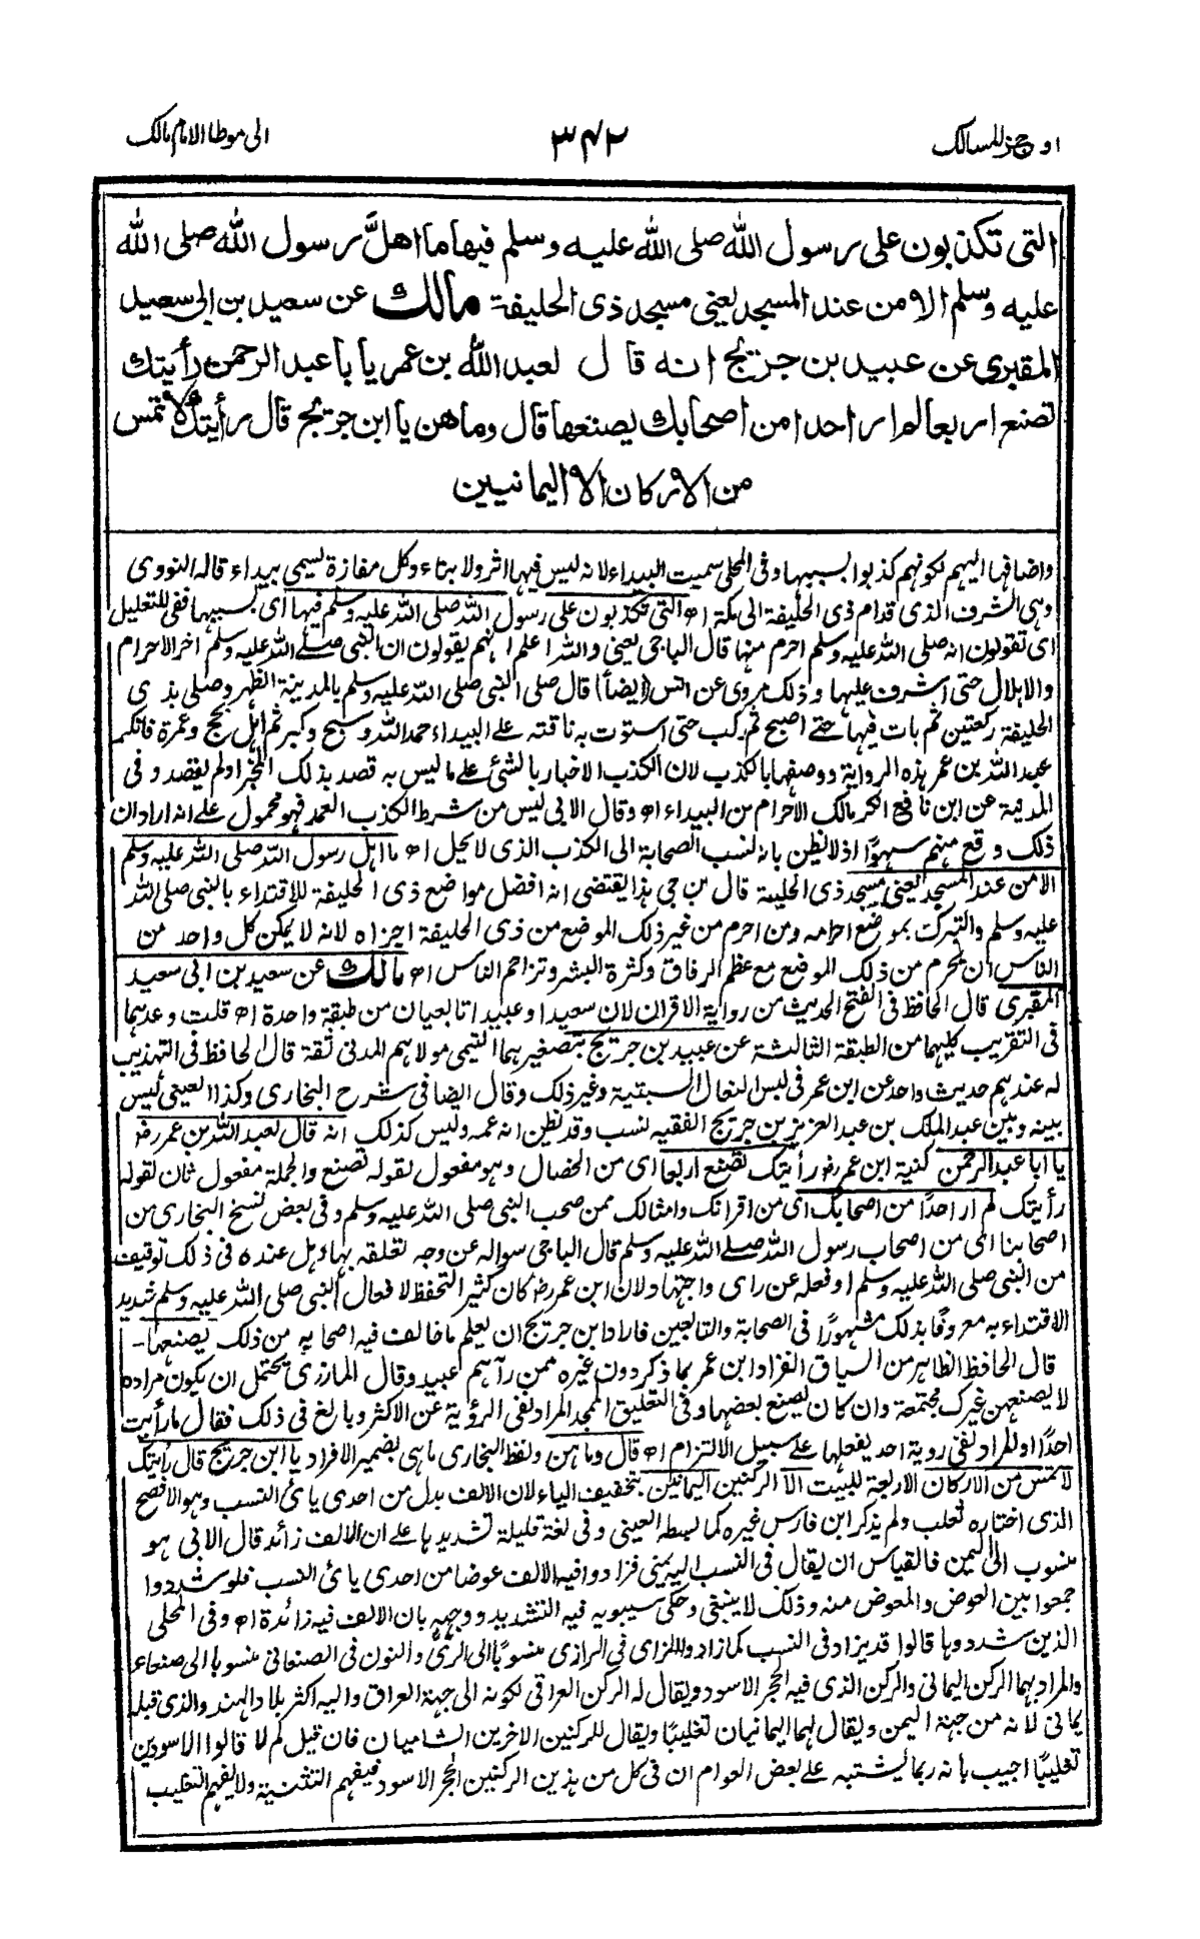 اوجز المسالك
٣٤٢
الى موطا الامام مالك
التى تكذبون على رسول الله صلى الله عليه وسلم فيها ما اهل رسول الله صلى الله
عليه وسلم الا من عند المسجد يعنى مسجد ذى الحليفة مالك عن سعيد بن ابى سعيد
المقبرى عن عبيد بن جريج انه قال لعبد الله بن عمر يا با عبد الرحمن رأيتك
تصنع اربعا لم ار احدا من اصحابك يصنعها قال وما هن يا ابن جريج قال رأيتك لا تمس
من الاركان الا اليمانيين
واضافها اليهم لكونهم كذبوا بسببها وفى المحلى سميت البيداء لانه ليس فيها اثر ولا بناء وكل مفازة تسمى بيداء قاله النووى
وهى الشرف الذى قدام ذى الحليفة الى مكة اه التى تكذبون على رسول الله صلى الله عليه وسلم فيها اى بسببها ففى للتعليل
اى تقولون انه صلى الله عليه وسلم احرم منها قال الباجى يعنى والله اعلم انهم يقولون ان النبى صلى الله عليه وسلم اخر الاحرام
والاهلال حتى اشرف عليها وذلك مروى عن انس (ايضا) قال صلى النبى صلى الله عليه وسلم بالمدينة الظهر وصلى بذى
الحليفة ركعتين ثم بات فيها حتى اصبح ثم ركب حتى استوت به ناقته على البيداء حمد الله وسبح وكبر ثم اهل بحج وعمرة فانكر
عبد الله بن عمر هذه الرواية ووصفها بالكذب لان الكذب الاخبار بالشئ على ما ليس به قصد بذلك المخبر او لم يقصد وفى
المدنية عن ابن نافع انكر مالك الاحرام من البيداء اه وقال الابى ليس من شرط الكذب العمد فهو محمول على انه اراد ان
ذلك وقع منهم سهوًا اذ لا يظن بانه نسب الصحابة الى الكذب الذى لا يحل اه ما اهل رسول الله صلى الله عليه وسلم
الا من عند المسجد يعنى مسجد ذى الحليفة قال بن جى هذا يقتضى انه افضل مواضع ذى الحليفة للاقتداء بالنبى صلى الله
عليه وسلم والتبرك بموضع احرامه ومن احرم من غير ذلك الموضع من ذى الحليفة اجزاه لانه لا يمكن كل واحد من
الناس ان يحرم من ذلك الموضع مع عظم الرفاق وكثرة البشر وتزاحم الناس اه مالك عن سعيد بن ابى سعيد
المقبرى قال الحافظ فى الفتح الحديث من رواية الاقران لان سعيدا وعبيدا تابعيان من طبقة واحدة اه قلت وعدهما
فى التقريب كليهما من الطبقة الثالثة عن عبيد بن جريج بتصغيرهما التيمى مولاهم المدنى ثقة قال الحافظ فى التهذيب
له عندهم حديث واحد عن ابن عمر فى لبس النعال السبتية وغير ذلك وقال ايضا فى شرح البخارى وكذا العينى ليس
بينه وبين عبد الملك بن عبد العزيز بن جريج الفقيه نسب وقد يظن انه عمه وليس كذلك انه قال لعبد الله بن عمر رض
يا ابا عبد الرحمن كنية ابن عمر رض رأيتك تصنع اربعا اى من الخصال وهو مفعول لقوله تصنع والجملة مفعول ثان لقوله
رأيتك لم ار احدًا من اصحابك اى من اقرانك وامثالك ممن صحب النبى صلى الله عليه وسلم وفى بعض نسخ البخارى من
اصحابنا اى من اصحاب رسول الله صلى الله عليه وسلم قال الباجى سواله عن وجه تعلقه بها وهل عنده فى ذلك توقيف
من النبى صلى الله عليه وسلم او فعله عن راى واجتهاد لان ابن عمر رض كان كثير التحفظ لافعال النبى صلى الله عليه وسلم شديد
الاقتداء به معروفًا بذلك مشهورًا فى الصحابة والتابعين فاراد ابن جريج ان يعلم ما خالف فيه اصحابه من ذلك يصنعها-
قال الحافظ الظاهر من السياق انفراد ابن عمر بما ذكر دون غيره ممن رآهم عبيد وقال المازرى يحتمل ان يكون مراده
لا يصنعهن غيرك مجتمعة وان كان يصنع بعضها وفى التعليق الممجد المراد نفى الرؤية عن الاكثر وبالغ فى ذلك فقال ما رأيت
احدًا او المراد نفى روية احد يفعلها على سبيل الالتزام اه قال وما هن ولفظ البخارى ما هى بضمير الافراد يا ابن جريج قال رأيتك
لا تمس من الاركان الاربعة للبيت الا الركنين اليمانيين بتخفيف الياء لان الالف بدل من احدى يائى النسب وهو الافصح
الذى اختاره ثعلب ولم يذكر ابن فارس غيره كما بسطه العينى وفى لغة قليلة تشديدها على ان الالف زائد قال الابى هو
منسوب الى اليمن فالقياس ان يقال فى النسب اليه يمنى فزادوا فيه الالف عوضا من احدى يائى النسب فلو شددوا
جمعوا بين العوض والمعوض منه وذلك لا ينبغى وحكى سيبويه فيه التشديد ووجهه بان الالف فيه زائدة اه وفى المحلى
الذين شددوها قالوا قد يزاد فى النسب كما زادوا الزاى فى الرازى منسوبًا الى الرى والنون فى الصنعانى منسوبا الى صنعاء
والمراد بهما الركن اليمانى والركن الذى فيه الحجر الاسود ويقال له الركن العراقى لكونه الى جهة العراق واليه اكثر بلاد الهند والذى قبله
يمانى لانه من جهة اليمن ويقال لهما اليمانيان تغليبًا ويقال للركنين الاخرين الشاميان فان قيل لم لا قالوا الاسودين
تغليبًا اجيب بانه ربما يشتبه على بعض العوام ان فى كل من هذين الركنين الحجر الاسود فيفهم التثنية ولا يفهم التغليب